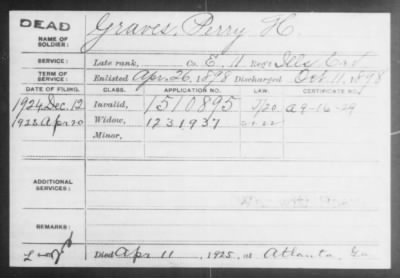 DEAD
NAME OF SOLDIER: Graves, Perry H.
SERVICE: Late rank, Co. E, 11 Reg't Ill. Cav
TERM OF SERVICE: Enlisted Apr. 26, 1898 Discharged Oct. 11, 1898
DATE OF FILING. CLASS. APPLICATION NO. LAW. CERTIFICATE NO.
1924 Dec. 12 Invalid, 1510895 A9-16-29
1925 Apr 20 Widow, 1231937
Minor,
ADDITIONAL SERVICES:
REMARKS:
Died Apr 11, 1925, at Atlanta, Ga